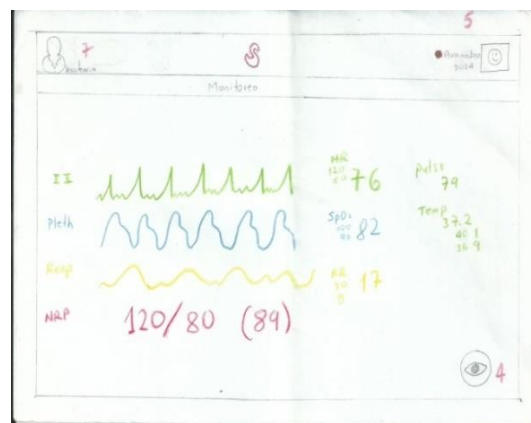 5
7
Monitoreo
II
HR
120
76
Pulso
79
Pleth
SpO2
100
90
82
Temp
37.2
40.1
36.9
Resp
RR
30
8
17
NRP
120/80 (89)
4